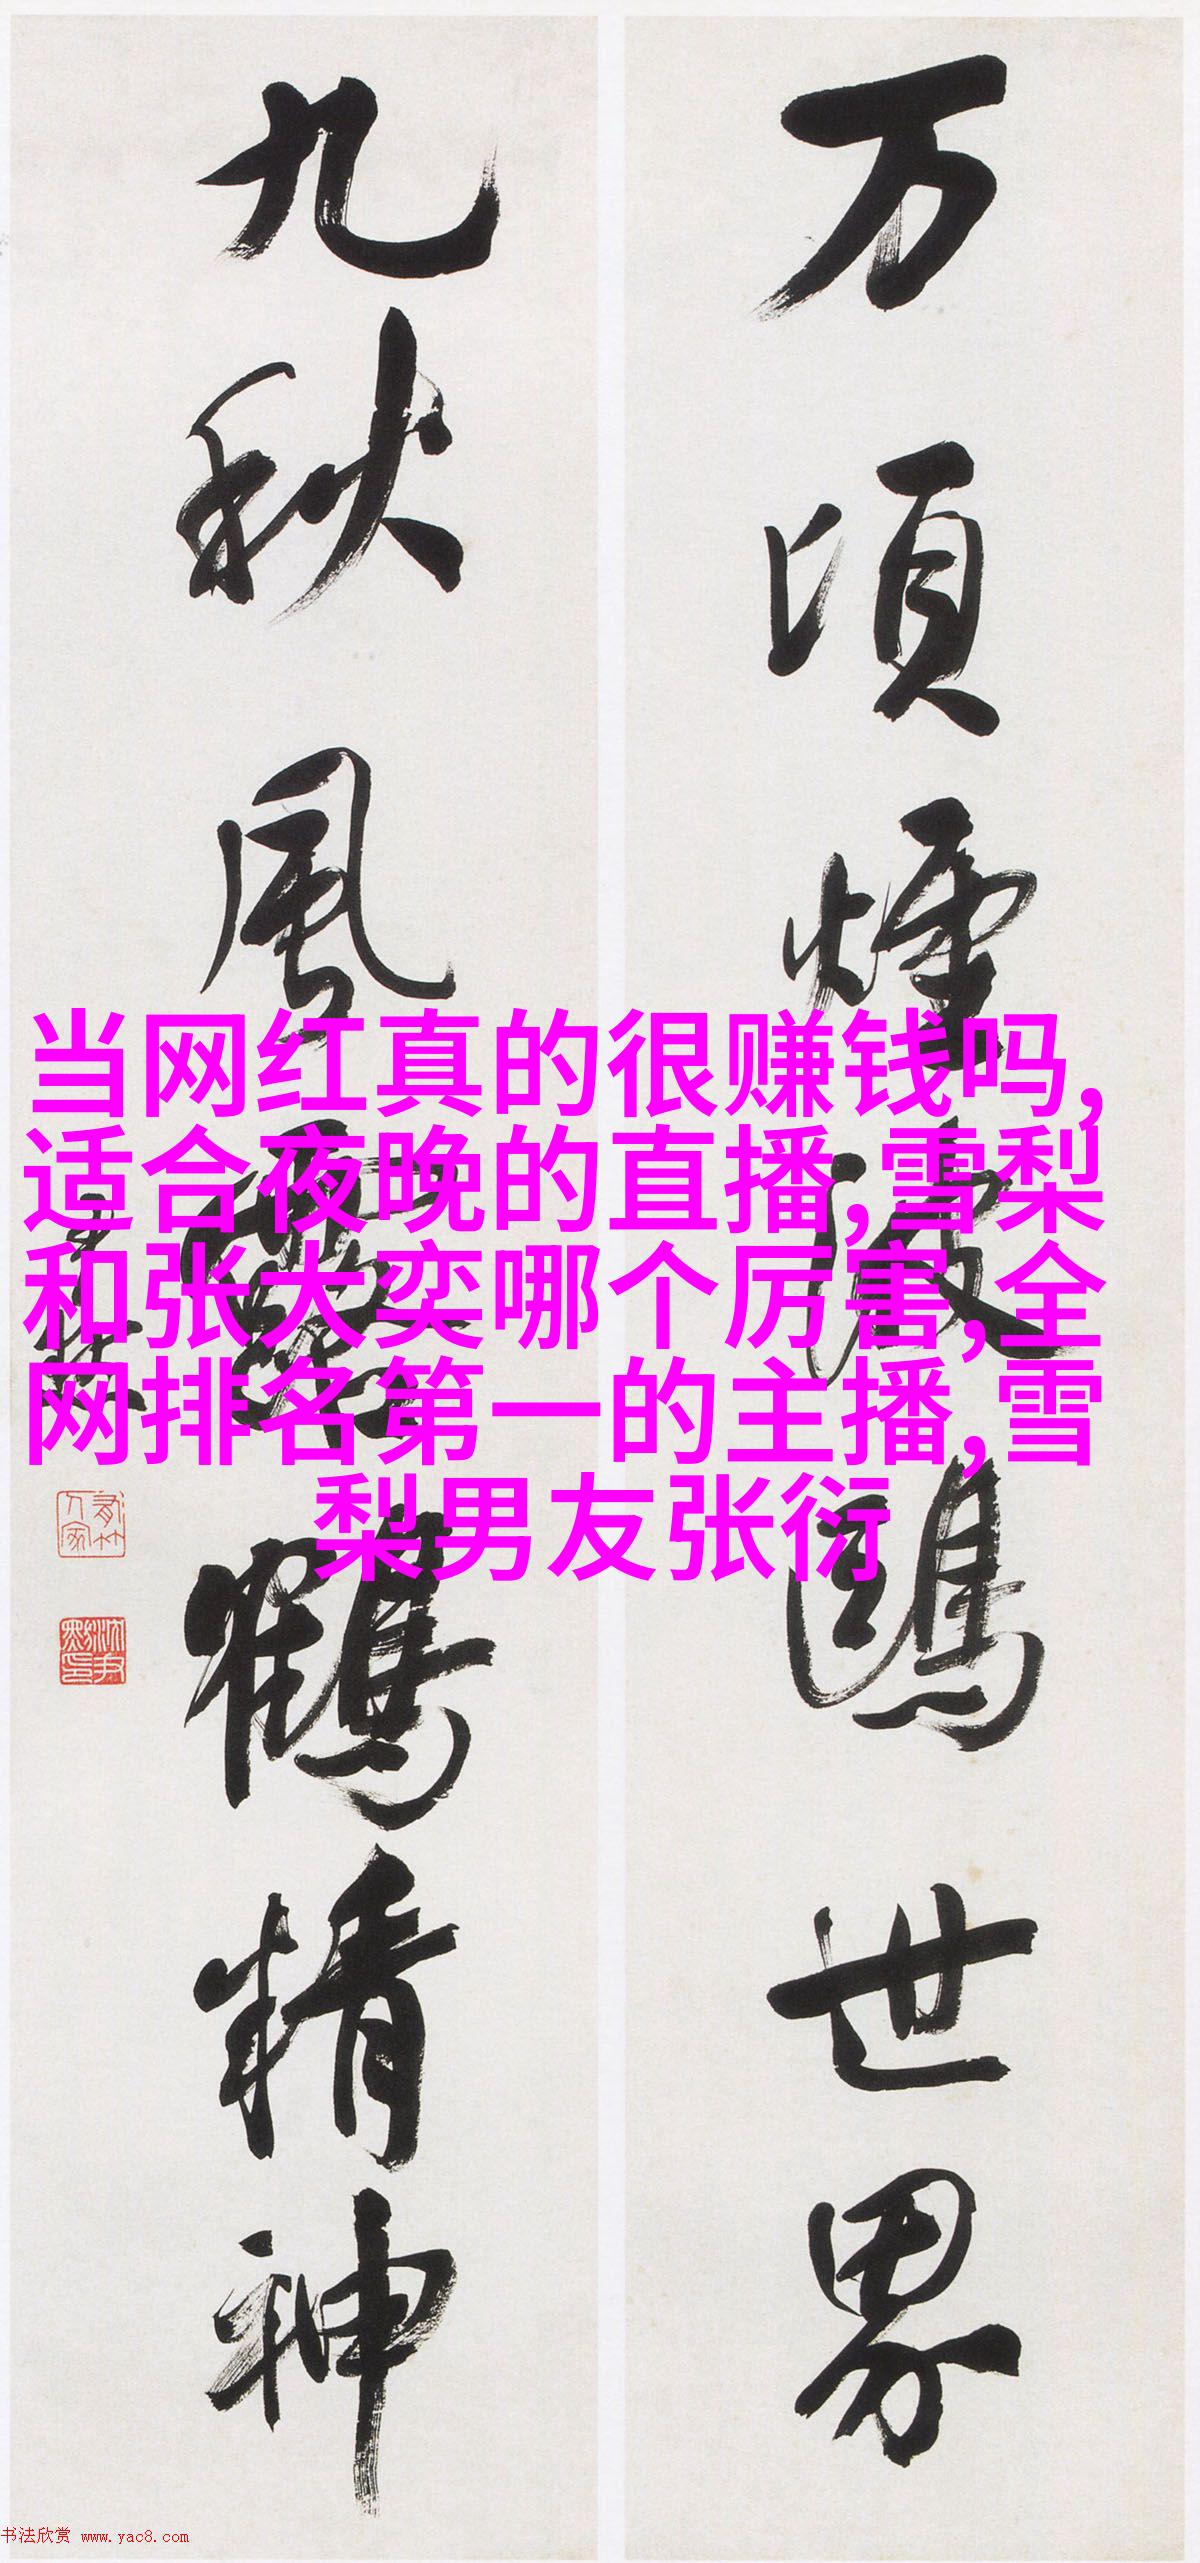 万頃煙波鷗世界
九秋風露鶴精神
尹默
沈尹默印
当网红真的很赚钱吗,
适合夜晚的直播,雪梨
和张大奕哪个厉害,全
网排名第一的主播,雪
梨男友张衍
书法欣赏 www.yac8.com